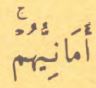 ج
أَمَانِيُّهُمْ